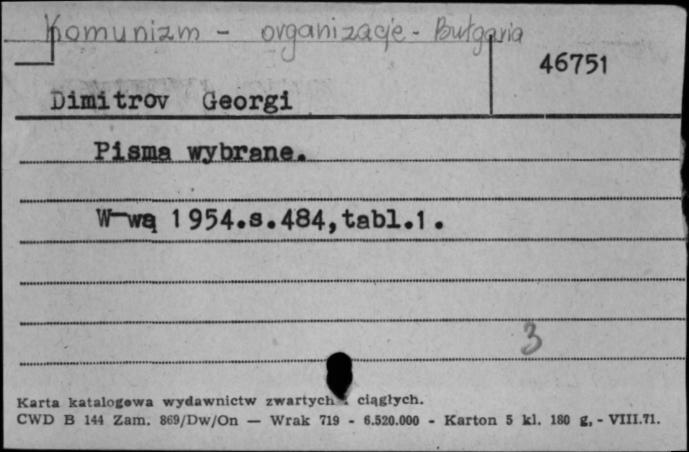 Komunizm - organizacje - Bułgaria
46751
Dimitrov Georgi
Pisma wybrane.
W-wą 1954.s.484,tabl.1.
3
Karta katalogowa wydawnictw zwartych i ciągłych.
CWD B 144 Zam. 869/Dw/On — Wrak 719 - 6.520.000 - Karton 5 kl. 180 g, - VIII.71.